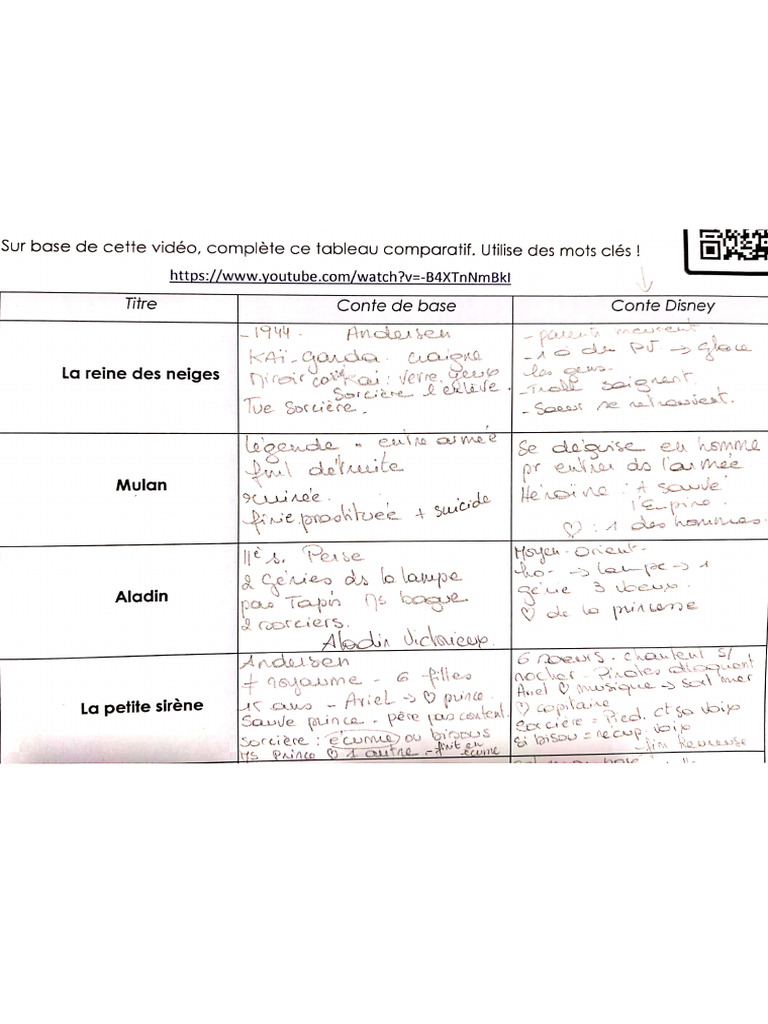 Sur base de cette vidéo, complète ce tableau comparatif. Utilise des mots clés !
https://www.youtube.com/watch?v=-B4XTnNmBkI
Titre
Conte de base
Conte Disney
La reine des neiges
- 1944 - Andersen
Kaï - Gerda craigne
Miroir Kaï : verre yeux
Sorcière l'enlève.
Tue sorcière.
- parents meurent.
- 10 du → glace
les gens.
- Trolls soignent.
- Soeur se retrouvent.
Mulan
légende - entre armée
finil détruite
ruinée.
finie prostituée + suicide
Se déguise en homme
pr entrer ds l'armée
Héroïne : + sauve
l'Empire
♡ : 1 des hommes.
Aladin
11è s. Perse
2 Génies ds la lampe
pas Tapis Ms bague
2 sorciers.
Aladin Victorieux.
Moyen-Orient-
→ lampe → 1
génie 3 voeux.
♡ de la princesse
La petite sirène
Andersen
royaume - 6 filles
15 ans - Ariel → ♡ prince.
Sauve prince - père pas content.
sorcière : écume ou bisous
Ms Prince ♡ 1 autre - finit en
écume
6 soeurs - chantent s/
rocher - Pirates attaquent
Ariel ♡ musique → sort mer
♡ capitaine
Sorcière = Pied. et sa voix
Si bisou = récup. voix
- fin heureuse